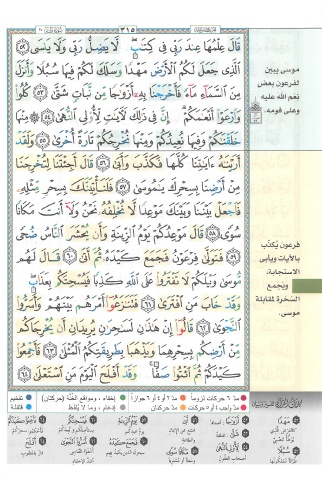 ٣١٥
قَالَ عِلْمُهَا عِندَ رَبِّي فِي كِتَٰبٍ ۖ لَّا يَضِلُّ رَبِّي وَلَا يَنسَى ﴿٥٢﴾
ٱلَّذِي جَعَلَ لَكُمُ ٱلْأَرْضَ مَهْدًا وَسَلَكَ لَكُمْ فِيهَا سُبُلًا وَأَنزَلَ
مِنَ ٱلسَّمَآءِ مَآءً فَأَخْرَجْنَا بِهِۦٓ أَزْوَٰجًا مِّن نَّبَاتٍ شَتَّىٰ ﴿٥٣﴾ كُلُوا۟
وَٱرْعَوْا۟ أَنْعَٰمَكُمْ ۗ إِنَّ فِي ذَٰلِكَ لَءَايَٰتٍ لِّأُو۟لِي ٱلنُّهَىٰ ﴿٥٤﴾ ۞ مِنْهَا
خَلَقْنَٰكُمْ وَفِيهَا نُعِيدُكُمْ وَمِنْهَا نُخْرِجُكُمْ تَارَةً أُخْرَىٰ ﴿٥٥﴾ وَلَقَدْ
أَرَيْنَٰهُ ءَايَٰتِنَا كُلَّهَا فَكَذَّبَ وَأَبَىٰ ﴿٥٦﴾ قَالَ أَجِئْتَنَا لِتُخْرِجَنَا
مِنْ أَرْضِنَا بِسِحْرِكَ يَٰمُوسَىٰ ﴿٥٧﴾ فَلَنَأْتِيَنَّكَ بِسِحْرٍ مِّثْلِهِۦ
فَٱجْعَلْ بَيْنَنَا وَبَيْنَكَ مَوْعِدًا لَّا نُخْلِفُهُۥ نَحْنُ وَلَآ أَنتَ مَكَانًا
سُوًى ﴿٥٨﴾ قَالَ مَوْعِدُكُمْ يَوْمُ ٱلزِّينَةِ وَأَن يُحْشَرَ ٱلنَّاسُ ضُحًى
﴿٥٩﴾ فَتَوَلَّىٰ فِرْعَوْنُ فَجَمَعَ كَيْدَهُۥ ثُمَّ أَتَىٰ ﴿٦٠﴾ قَالَ لَهُم
مُّوسَىٰ وَيْلَكُمْ لَا تَفْتَرُوا۟ عَلَى ٱللَّهِ كَذِبًا فَيُسْحِتَكُم بِعَذَابٍ ۖ
وَقَدْ خَابَ مَنِ ٱفْتَرَىٰ ﴿٦١﴾ فَتَنَٰزَعُوٓا۟ أَمْرَهُم بَيْنَهُمْ وَأَسَرُّوا۟
ٱلنَّجْوَىٰ ﴿٦٢﴾ قَالُوٓا۟ إِنْ هَٰذَٰنِ لَسَٰحِرَٰنِ يُرِيدَانِ أَن يُخْرِجَاكُم
مِّنْ أَرْضِكُم بِسِحْرِهِمَا وَيَذْهَبَا بِطَرِيقَتِكُمُ ٱلْمُثْلَىٰ ﴿٦٣﴾ فَأَجْمِعُوا۟
كَيْدَكُمْ ثُمَّ ٱئْتُوا۟ صَفًّا ۚ وَقَدْ أَفْلَحَ ٱلْيَوْمَ مَنِ ٱسْتَعْلَىٰ ﴿٦٤﴾
موسى يبين
لفرعون بعض
نعم الله عليه
وعلى قومه.
فرعون يكذب
بالآيات ويأبى
الاستجابة،
ويجمع
السحرة لمقابلة
موسى.
مدّ ٦ حركات لزوماً
مدّ ٢ أو ٤ أو ٦ جوازاً
إخفاء، ومواقع الغنّة (حركتان)
تفخيم
مدّ واجب ٤ أو ٥ حركات
مدّ حركتان
إدغام، وما لا يلفظ
قلقلة